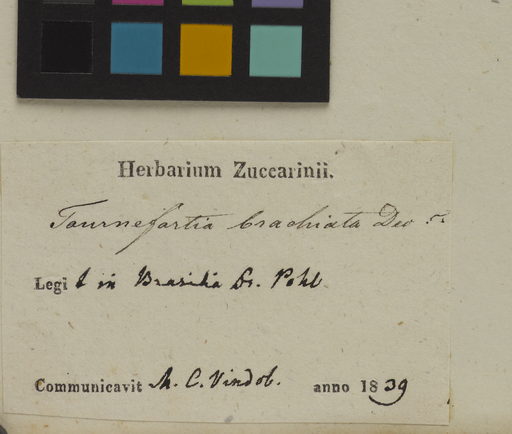 Herbarium Zuccarinii.
Tournefortia brachiata Dec
Legit in Brasilia Dr. Pohl
Communicavit M. C. Vindob. anno 1839